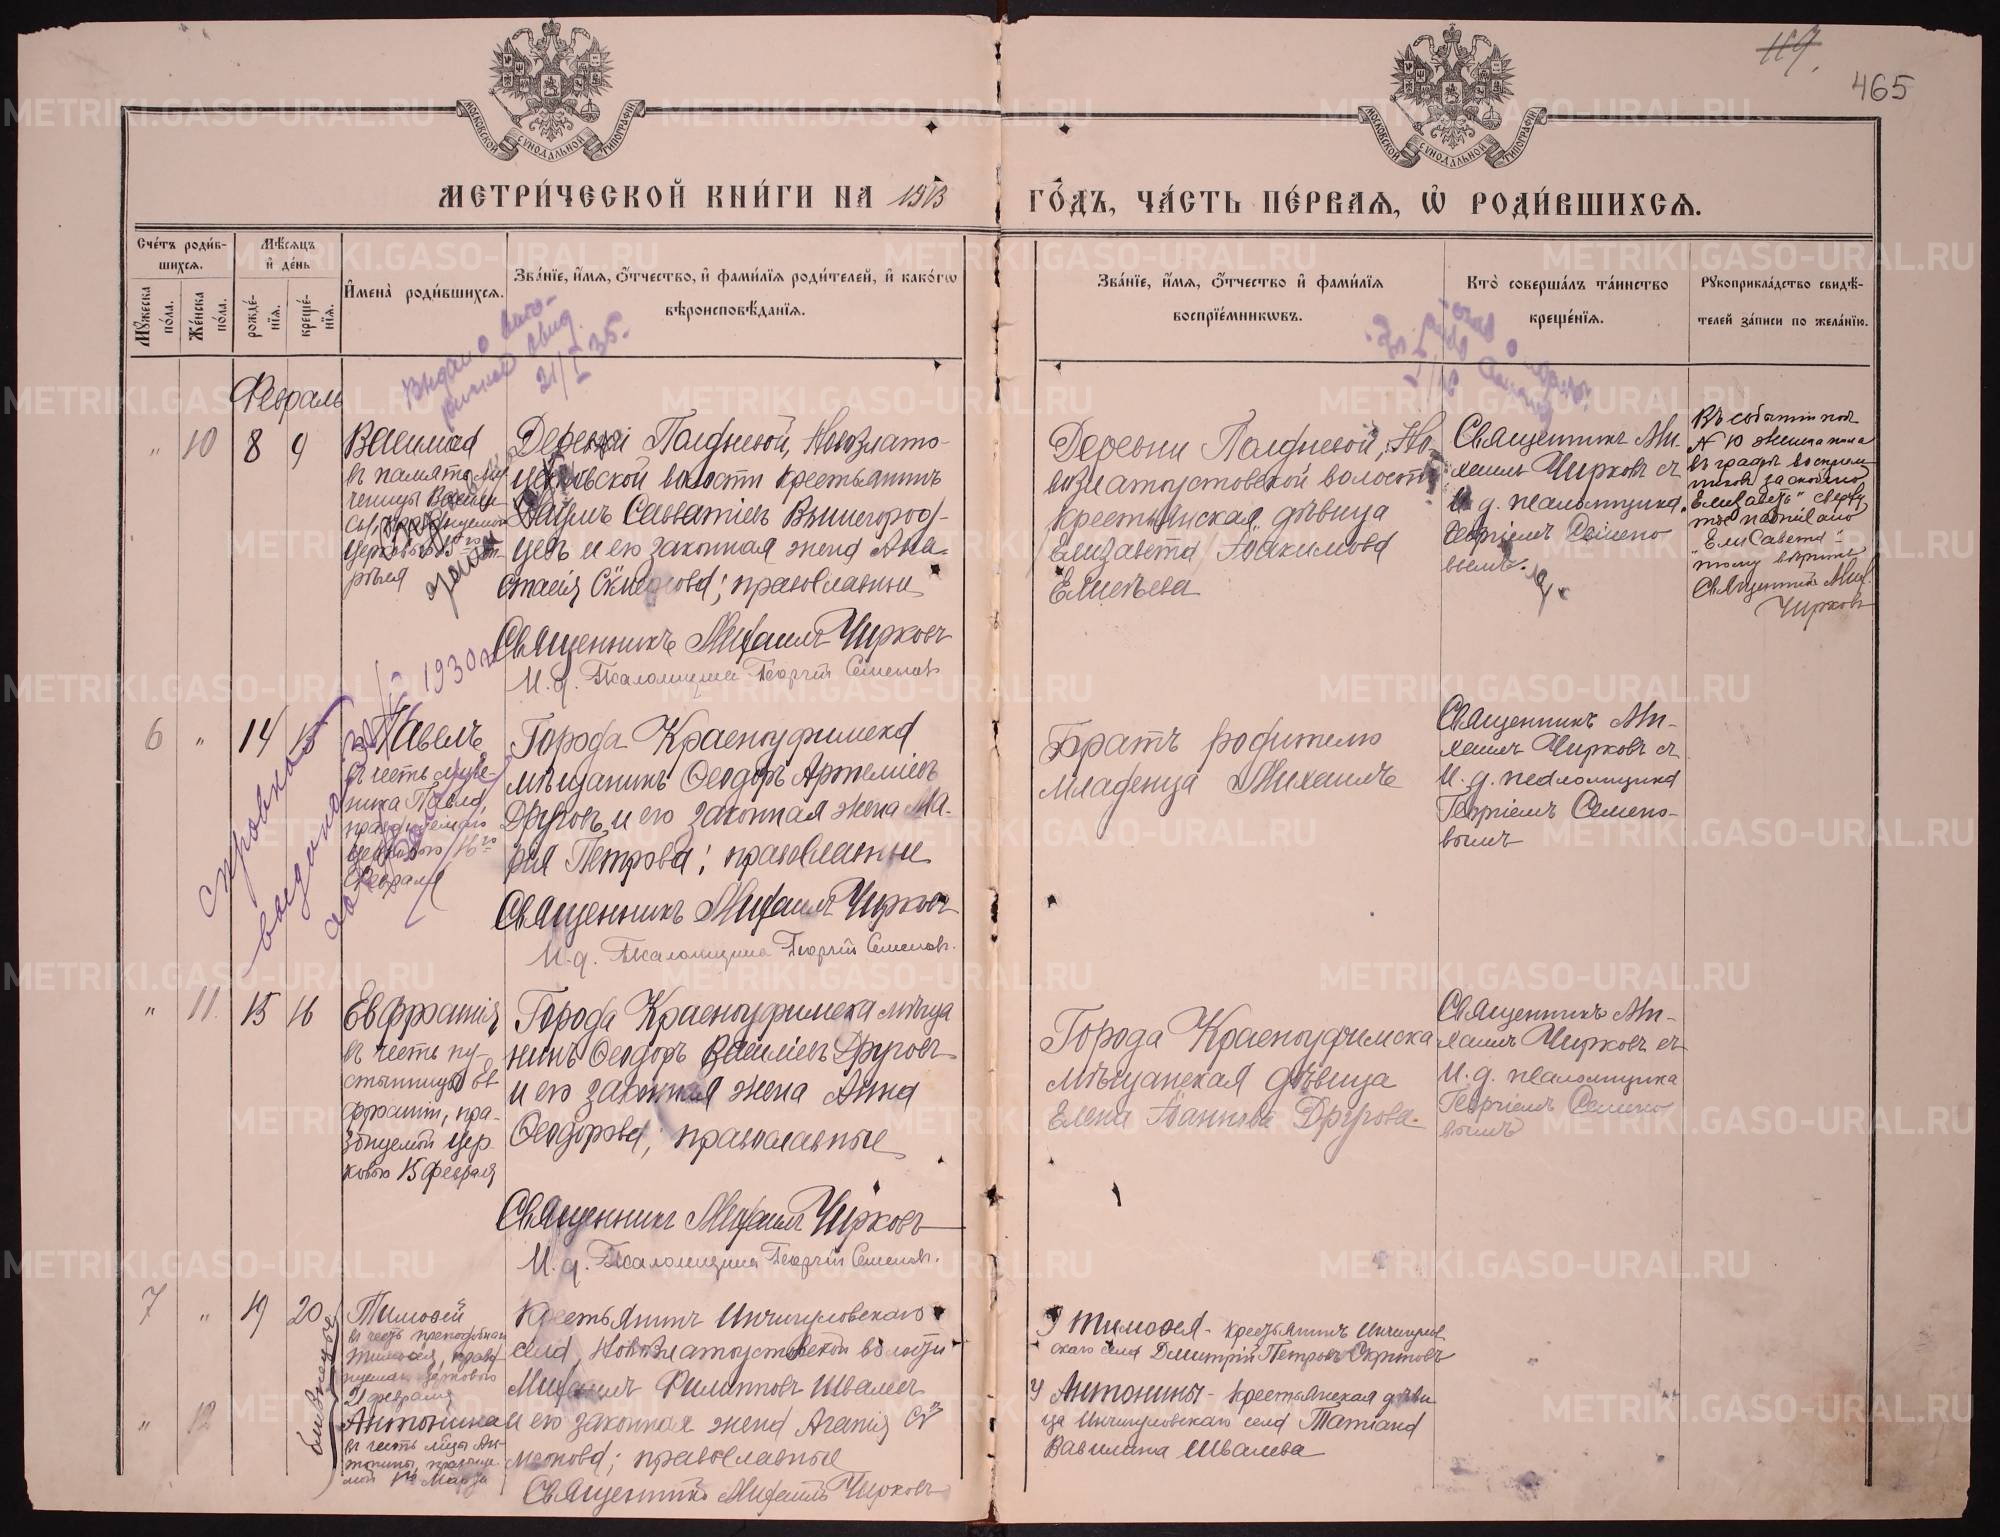 119.
465
МОСКОВСКОЙ СѴНОДАЛЬНОЙ ТИПОГРАФІИ
МОСКОВСКОЙ СѴНОДАЛЬНОЙ ТИПОГРАФІИ
МЕТРИ́ЧЕСКОЙ КНИ́ГИ НА 1913
ГО́ДЪ, ЧА́СТЬ ПЕ́РВАЯ, Ѡ҆ РОДИ́ВШИХСЯ.
Сче́тъ роди́в-
шихся.
Мѣ́сяцъ
и҆ де́нь
Мꙋ́жеска
по́ла.
Же́нска
по́ла.
рожде́-
нїя.
креще́-
нїя.
И҆мена̀ роди́вшихся.
Зва́нїе, и҆́мя, ѻ҆́тчество, и҆ фами́лїя роди́телей, и҆ како́гѡ
вѣроисповѣ́данїя.
Зва́нїе, и҆́мя, ѻ҆́тчество и҆ фами́лїя
воспрїе́мникѡвъ.
Кто̀ соверша́лъ та́инство
креще́нїя.
Рꙋкоприкла́дство свидѣ́-
телей за́писи по жела́нїю.
21/I 35.
Февраль
" 10 8 9
Василиса
въ память му-
ченицы Васили-
сы,
церковью
Деревни Полдневой, Новозлато-
устовской волости крестьянинъ
Наумъ Савватіевъ Вышегород-
цевъ и его законная жена Ана-
стасія Сѵмеонова; православные
Священникъ Михаилъ Чирковъ
И. д. Псаломщика Георгій Семеновъ
Деревни Полдневой, Но-
возлатоустовской волости
крестьянская дѣвица
Елизавета Іоакимова
Елисѣева
Священникъ Ми-
хаилъ Чирковъ съ
И. д. псаломщика
Георгіемъ Семено-
вымъ.
Въ событіи подъ
№ 10 женска пола
въ графѣ воспріем-
никовъ за скоблено
"Елизаветъ" сверху
тое написано
"Елисавета" –
тому вѣрить
Священникъ Мих.
Чирковъ
справка
выдана
1930 г.
6 " 14 15
Павелъ
въ честь муче-
ника Павла,
празднуемаго
церковью 16го
Февраля
Города Красноуфимска
мѣщанинъ Ѳеодоръ Артеміевъ
Друговъ, и его законная жена Ма-
рія Петрова; православные
Священникъ Михаилъ Чирковъ
И. д. Псаломщика Георгій Семеновъ.
Братъ родителю
младенца Михаилъ
Священникъ Ми-
хаилъ Чирковъ съ
И. д. псаломщика
Георгіемъ Семено-
вымъ
" 11. 15 16
Евфрасія
въ честь пу-
стынницы Ев
фрасіи, пра-
здуемой цер
ковью 15 февраля
Города Красноуфимска мѣща
нинъ Ѳеодоръ Василіевъ Друговъ
и его законная жена Анна
Ѳеодорова; православные
Священникъ Михаилъ Чирковъ
И. д. Псаломщика Георгій Семеновъ.
Города Красноуфимска
мѣщанская дѣвица
Елена Іоаннова Другова.
Священникъ Ми-
хаилъ Чирковъ съ
И. д. псаломщика
Георгіемъ Семено
вымъ
7 " 19 20
близнецы
Тимоѳей
въ честь преподобнаго
Тимоѳея, празд-
нуемаго церковью
21 февраля
" 12
Антонина
въ честь м‑цы Ан-
тонины, праздную
мой 1го Марта
Крестьянинъ Ичигуловскаго
села, Новозлатоустовской волости
Михаилъ Филипповъ Шваловъ
и его законная жена Агапія Сѵ
меонова; православные
Священникъ Михаилъ Чирковъ
У Тимоѳея - крестьянинъ Ичигулов
скаго села Димитрій Петровъ Скрыповъ
У Антонины - крестьянская дѣви
ца Ичигуловскаго села Татіана
Вавилина Швалева
METRIKI.GASO-URAL.RU